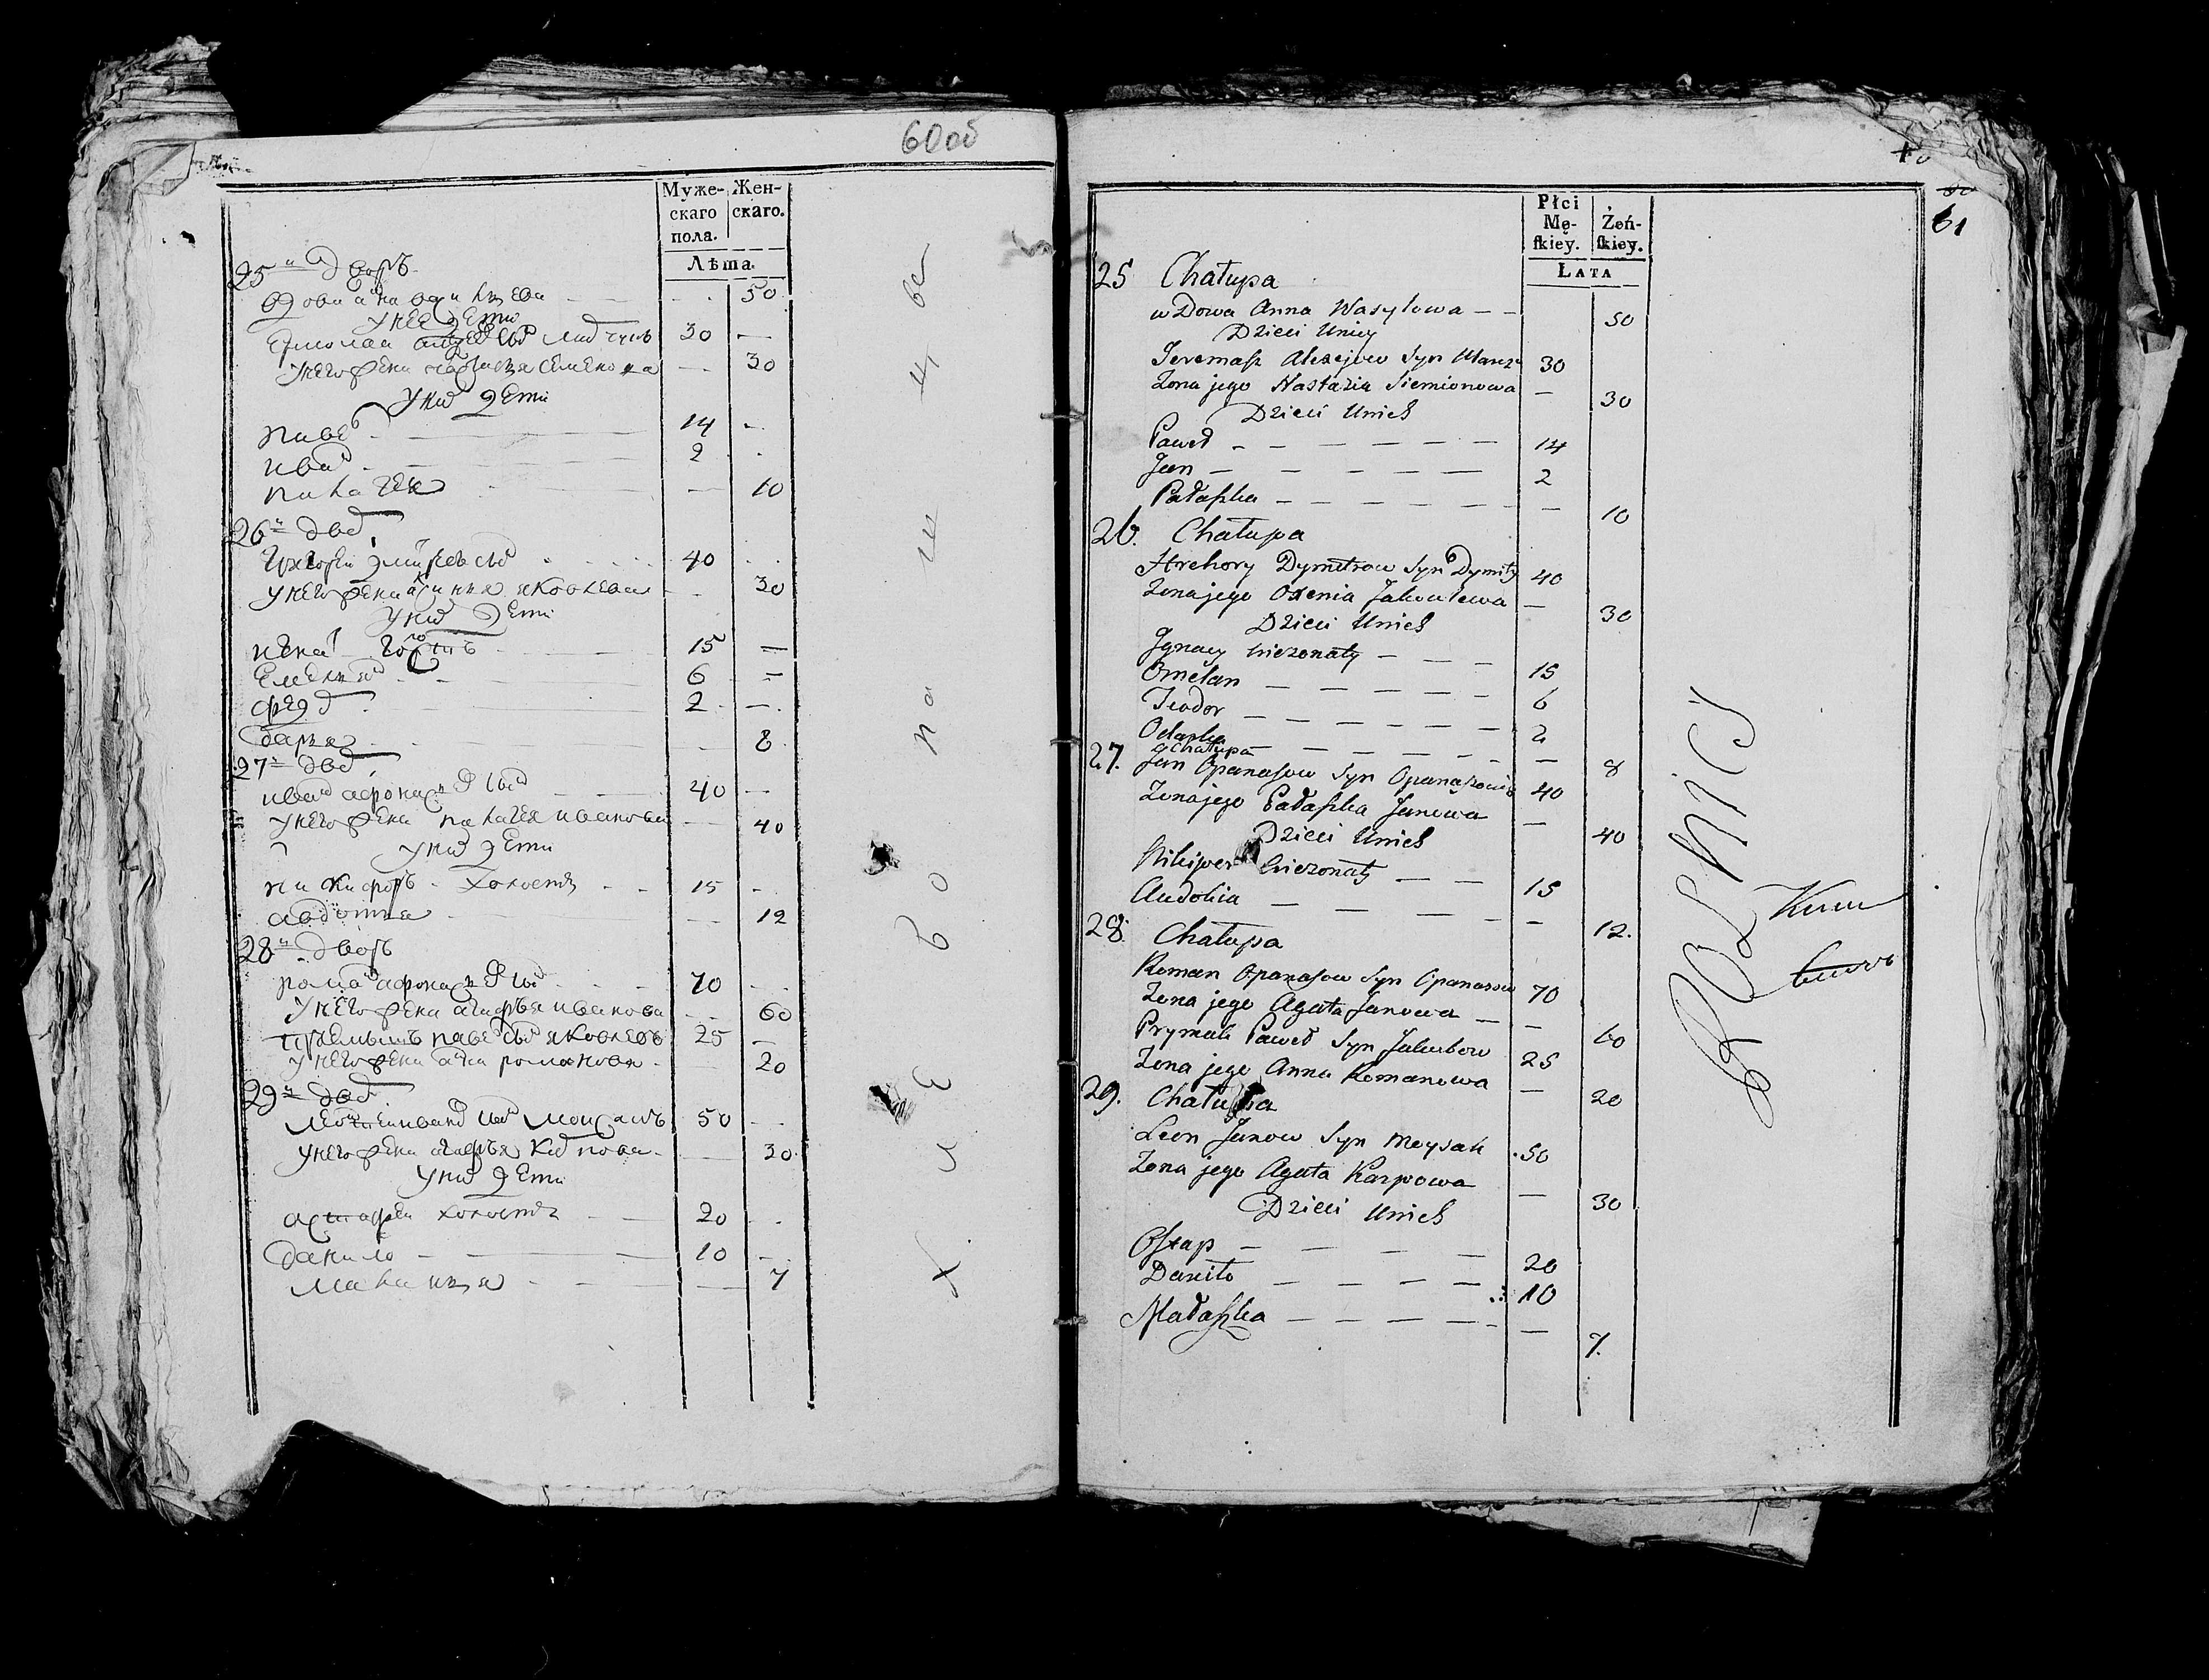 60об
Муже- Жен-
скаго скаго.
пола.
Лѣта.
25й дворъ
вдова анна васильева 50
У нее дети
30
У него жена настасья семенова 30
У них дети
павел 14
иван 2
палагея 10
26й двор
григорей дмитревъ сын 40
У него жена аксинья яковлева 30
У них дети
игнат холостъ 15
емельян 6
федор 2
дарья 8
27й двор
иван афонасьев сын 40
У него жена палагея иванова 40
У них дети
никифоръ холостъ 15
авдотья 12
28й дворъ
роман афонасьев сын 70
У него жена агафья иванова 60
павел сын яковлевъ 25
У него жена анна романова 20
29й двор
леонтей иванов сын моисакъ 50
У него жена агафья карпова 30
У них дети
астафей холостъ 20
данило 10
маланья 7
61
Płci
Mę- Żeń-
ſkiey. ſkiey.
Lata
25 Chałupa
wDowa Anna Wasylowa 50
Dzieci Uniey
Jeremaſz Alexejow Syn 30
Zona jego Nastazia Siemionowa 30
Dzieci Unich
Paweł 14
Jan 2
Pałaſzka 10
26. Chałupa
Hrehory Dymitrow Syn 40
Zona jego Oxenia Jakowlewa 30
Dzieci Unich
Jgnacy Niezonaty 15
Omelan 6
Teodor 2
Odarka 8
27. Chałupa
Jan Opanaſow Syn 40
Zona jego Pałaſzka Janowa 40
Dzieci Unich
Nikiper Niezonaty 15
Audokia 12.
28. Chałupa
Roman Opanaſow Syn 70
Zona jego Agata Janowa 60
Prymak Paweł Syn Jakubow 25
Zona jego Anna Romanowa 20
29. Chałupa
Leon Janow Syn Moysak 50
Zona jego Agata Karpowa 30
Dzieci Unich
Oſtap 20
Daniło 10
Małaſzka 7.